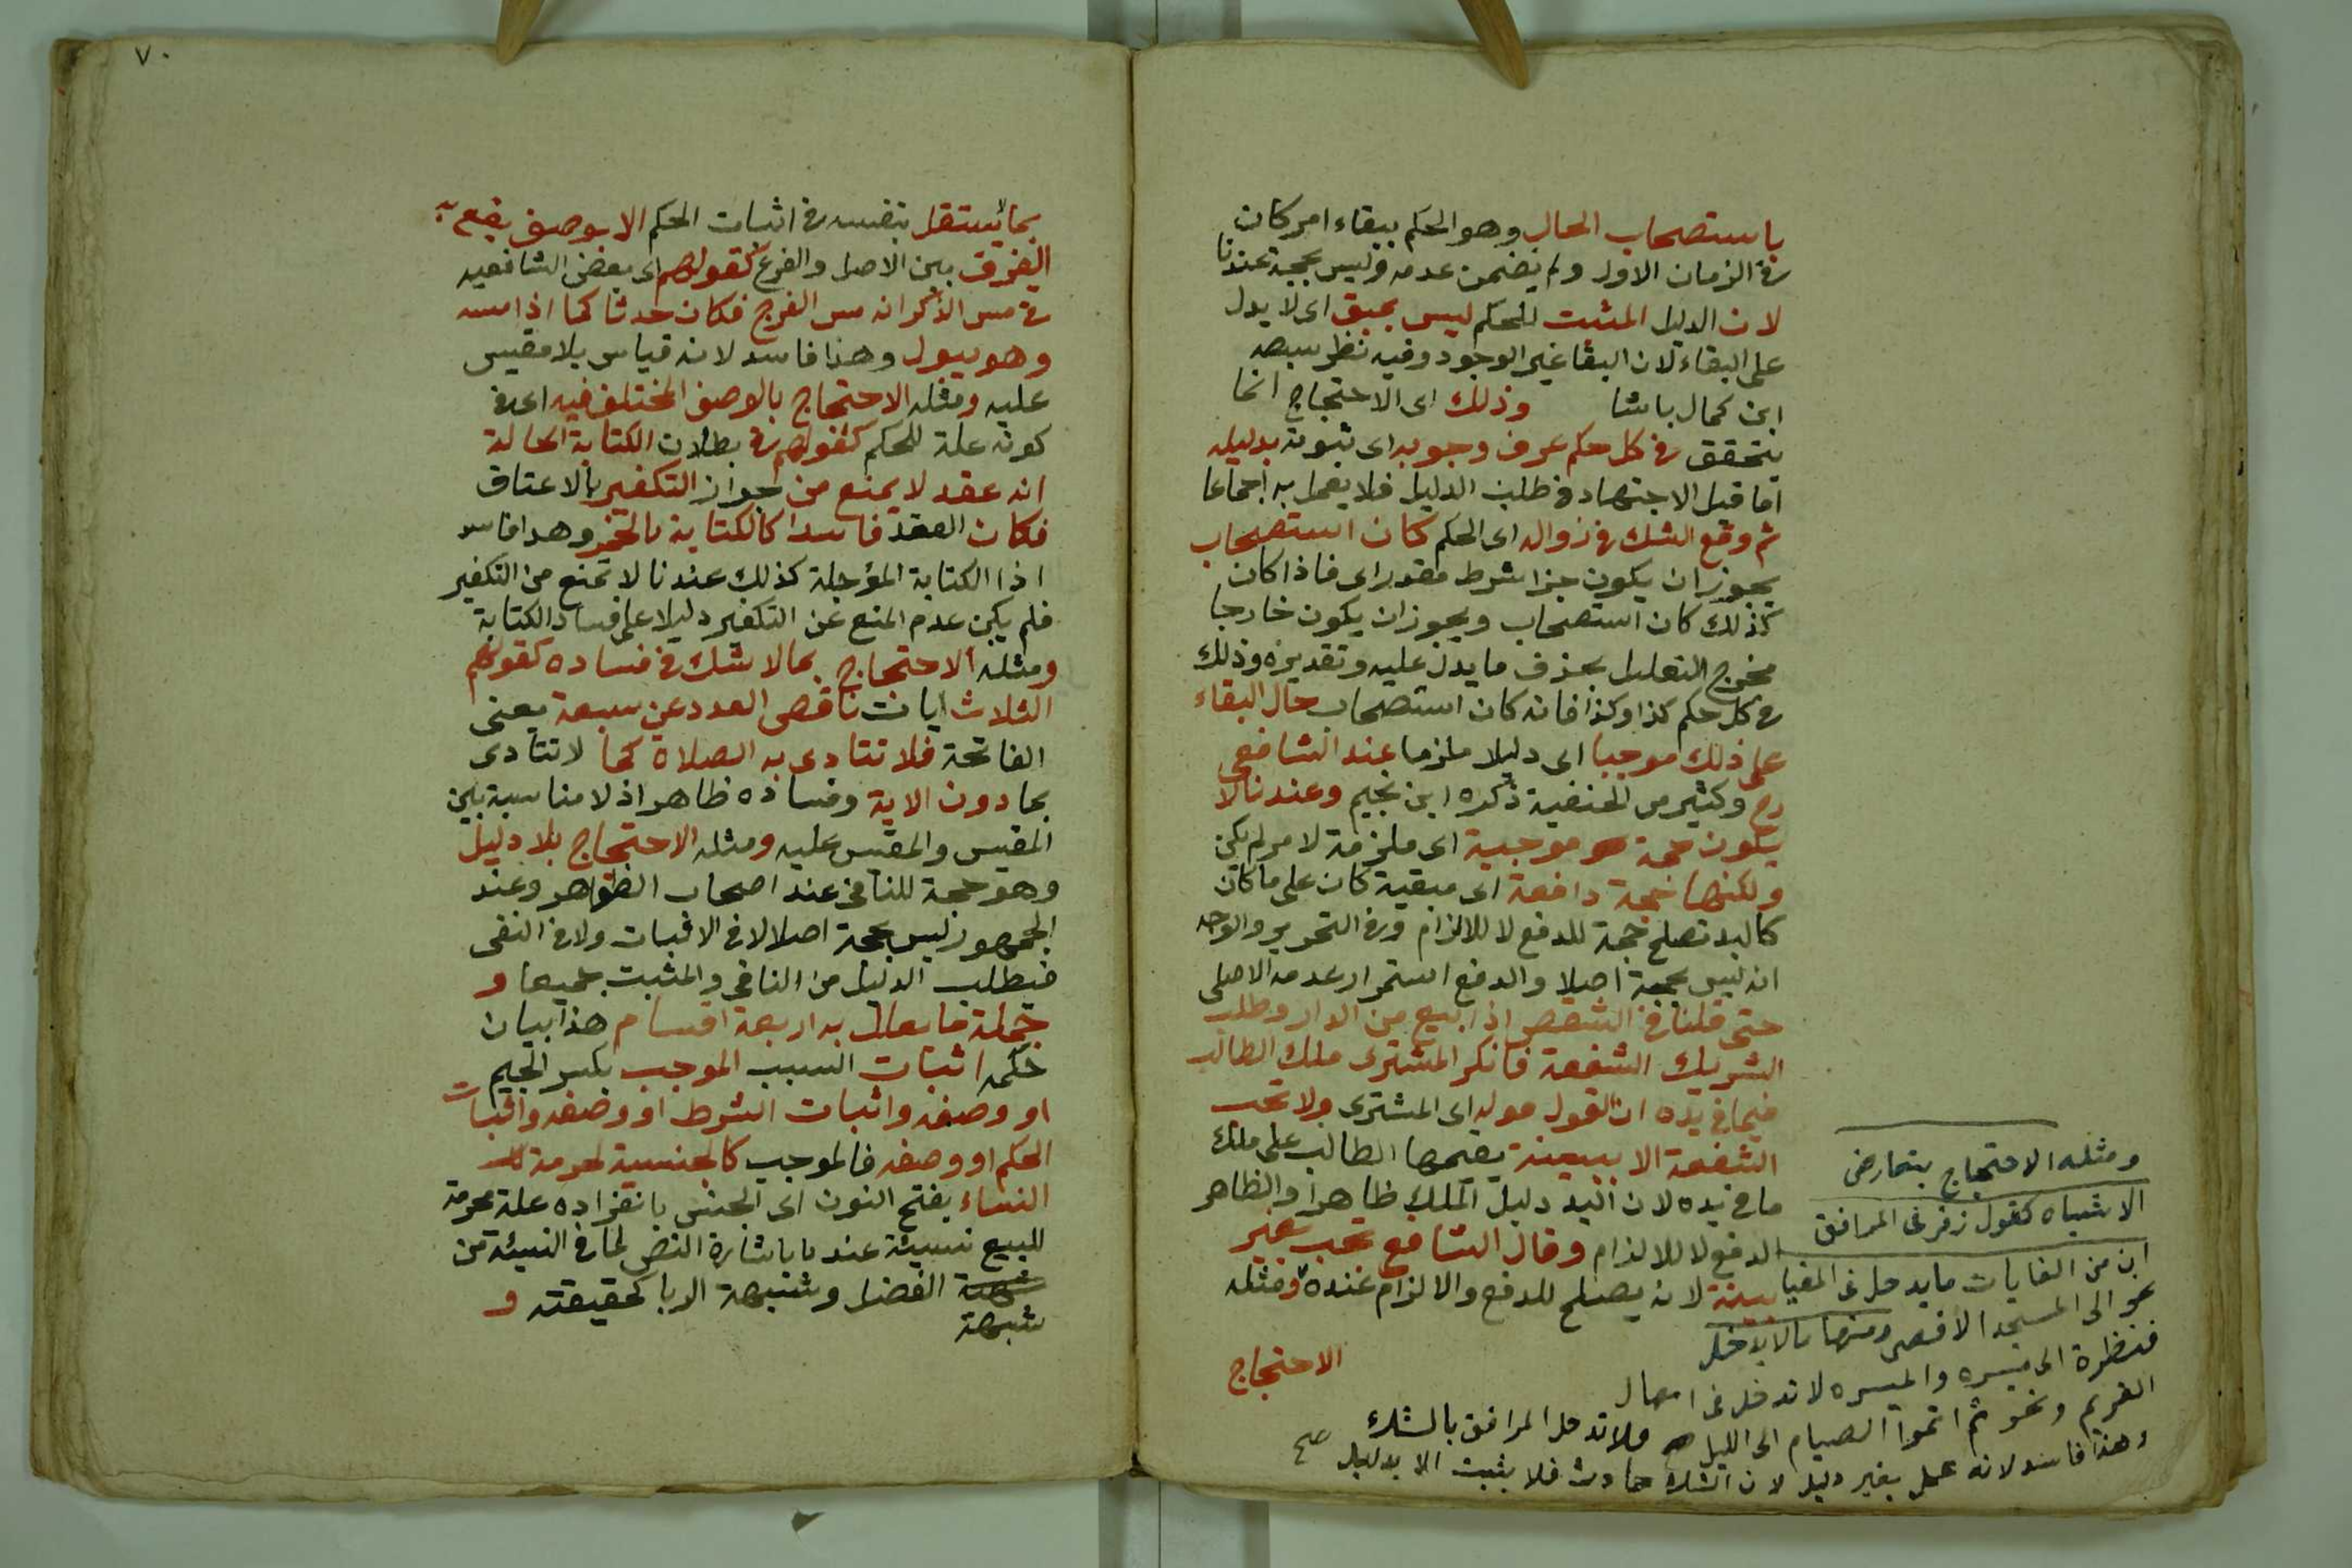 باستصحاب الحال وهو الحكم ببقاء امر كان
فى الزمان الاول ولم يضمن عدمه وليس بحجة عندنا
لان الدليل المثبت للحكم ليس بمبق اى لا يدل
على البقاء لان البقا غير الوجود وفيه نظر
ابن كمال باشا وذلك اى الاحتجاج انما
يتحقق فى كل حكم عرف وجوبه اى ثبوته بدليله
اما قبل الاجتهاد فى طلب الدليل فلا يعمل به اجماعا
ثم وقع الشك فى زواله اى الحكم كان استصحاب
يجوز ان يكون جزا شرط مقدر اى فاذا كان
كذلك كان استصحاب ويجوز ان يكون خارجا
مخرج التعليل بحذف ما يدل عليه وتقديره وذلك
فى كل حكم كذا وكذا فانه كان استصحاب حال البقاء
على ذلك موجبا اى دليلا ملزما عند الشافعى
رح وكثير من الحنفية ذكره ابن نجيم وعندنا لا
يكون حجة موجبة اى ملزمة لامر لم يكن
ولكنها حجة دافعة اى مبقية كان على ما كان
كاليد تصلح حجة للدفع لا للالزام وفى التحرير والوجه
انه ليس بحجة اصلا والدفع استمرار عدمه الاصلى
حتى قلنا فى الشقص اذا بيع من الدار وطلب
الشريك الشفعة فانكر المشترى ملك الطالب
فيما فى يده ان القول قوله اى المشترى ولا تجب
الشفعة الا ببينة يقيمها الطالب على ملك
ما فى يده لان اليد دليل الملك ظاهرا والظاهر
للدفع لا للالزام وقال الشافع تجب بغير
بينة لانه يصلح للدفع والالزام عنده ومثله
الاحتجاج
ومثله الاحتجاج بتعارض
الاشباه كقول زفر فى المرافق
ان من الغايات ما يدخل فى المغيا
نحو الى المسجد الاقصى ومنها ما لا يدخل
فنظرة الى ميسره والميسره لا تدخل فى امهال
الغريم ونحو ثم اتموا الصيام الى الليل ولا تدخل المرافق بالشك
وهذا فاسد لانه عمل بغير دليل لان الشك حادث فلا يثبت الا بدليل صح
٧٠
بما لا يستقل بنفسه فى اثبات الحكم الا بوصف يقع به
الفرق بين الاصل والفرع كقولهم اى بعض الشافعيه
فى مس الذكر انه مس الفرج فكان حدثا كما اذا مسه
وهو يبول وهذا فاسد لانه قياس بلا مقيس
عليه ومثله الاحتجاج بالوصف المختلف فيه اى فى
كونه علة للحكم كقولهم فى بطلان الكتابة الحالة
انه عقد لا يمنع من جواز التكفير بالاعتاق
فكان العقد فاسدا كالكتابة بالخمر وهذا فاسد
اذا الكتابة المؤجلة كذلك عندنا لا تمنع من التكفير
فلم يكن عدم المنع عن التكفير دليلا على فساد الكتابة
ومثله الاحتجاج بما لا شك فى فساده كقولهم
الثلاث ايات ناقص العدد عن سبعة يعنى
الفاتحة فلا تتادى به الصلاة كما لا تتادى
بما دون الاية وفساده ظاهر اذ لا مناسبة بين
المقيس والمقيس عليه ومثله الاحتجاج بلا دليل
وهو حجة للنافى عند اصحاب الظواهر وعند
الجمهور ليس بحجة اصلا لا فى الاثبات ولا فى النفى
فيطلب الدليل من النافى والمثبت جميعا و
جملة ما يعلل به اربعة اقسام هذا بيان
حكمه اثبات السبب الموجب بكسر الجيم
او وصفه واثبات الشرط او وصفه واثبات
الحكم او وصفه فالموجب كالجنسية لحرمة
النساء بفتح النون اى الجنس بانفراده علة لحرمة
للبيع نسيئة عندنا باشارة النص لما فى النسيئة من
شبهة الفضل وشبهة الربا كحقيقته و
شبهة